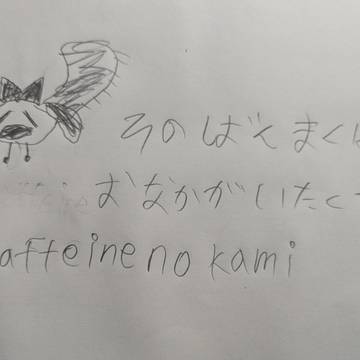 そのばんまくは
おなかがいたくて
affeine no kami